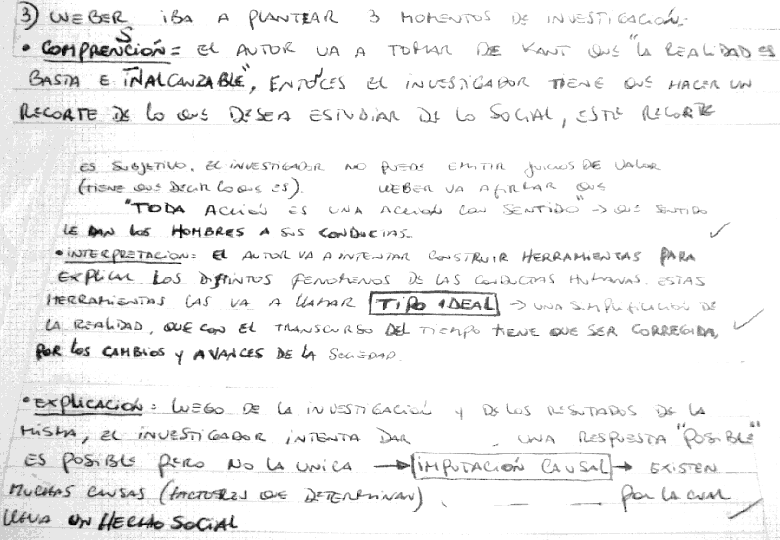 3) WEBER IBA A PLANTEAR 3 MOMENTOS DE INVESTIGACIÓN.
• COMPRENCIÓN = EL AUTOR VA A TOMAR DE KANT QUE "LA REALIDAD ES
S
BASTA E INALCANZABLE", ENTOCES EL INVESTIGADOR TIENE QUE HACER UN
RECORTE DE LO QUE DESEA ESTUDIAR DE LO SOCIAL, ESTE RECORTE
ES SUBJETIVO. EL INVESTIGADOR NO PUEDE EMITIR JUICIOS DE VALOR
(TIENE QUE DECIR LO QUE ES). WEBER VA AFIRMAR QUE
"TODA ACCIÓN ES UNA ACCIÓN CON SENTIDO" → QUE SENTIDO
LE DAN LOS HOMBRES A SUS CONDUCTAS.
• INTERPRETACION: EL AUTOR VA A INTENTAR CONSTRUIR HERRAMIENTAS PARA
EXPLICAR LOS DISTINTOS FENOMENOS DE LAS CONDUCTAS HUMANAS. ESTAS
HERRAMIENTAS LAS VA A LLAMAR TIPO IDEAL → UNA SIMPLIFICACION DE
LA REALIDAD, QUE CON EL TRANSCURSO DEL TIEMPO TIENE QUE SER CORREGIDA,
POR LOS CAMBIOS Y AVANCES DE LA SOCIEDAD.
• EXPLICACIÓN: LUEGO DE LA INVESTIGACIÓN Y DE LOS RESULTADOS DE LA
MISMA, EL INVESTIGADOR INTENTA DAR UNA RESPUESTA "POSIBLE"
ES POSIBLE PERO NO LA UNICA → IMPUTACIÓN CAUSAL → EXISTEN
MUCHAS CAUSAS (FACTORES QUE DETERMINAN) POR LA CUAL
LLEVA UN HECHO SOCIAL